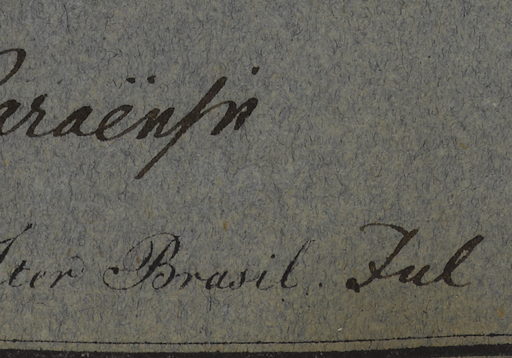 Paraënsis
Iter Brasil. Jul